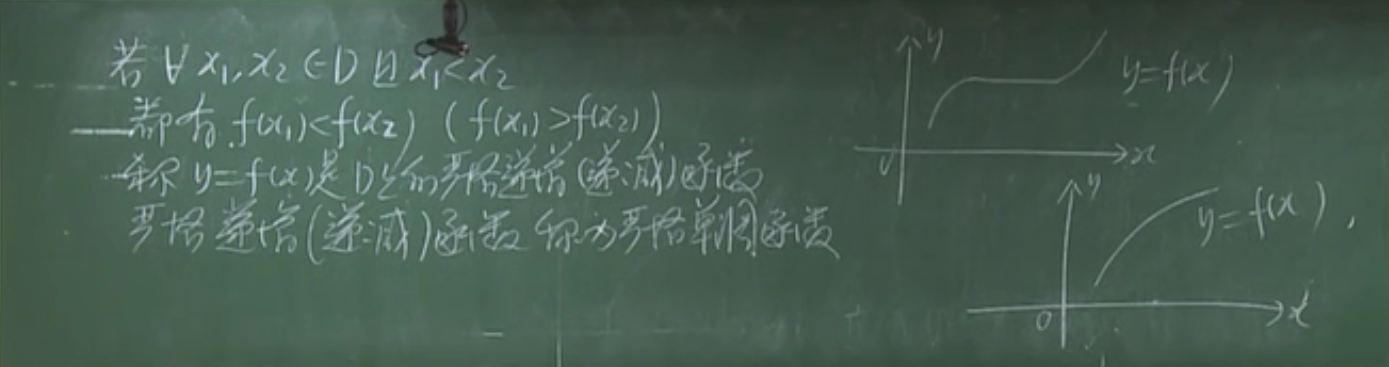 若 ∀ x₁,x₂∈D 且 x₁<x₂
都有 f(x₁)<f(x₂) (f(x₁)>f(x₂))
称 y=f(x)是D上的严格递增(递减)函数
严格递增(递减)函数称为严格单调函数
y
y=f(x)
0
x
y
y=f(x),
0
x